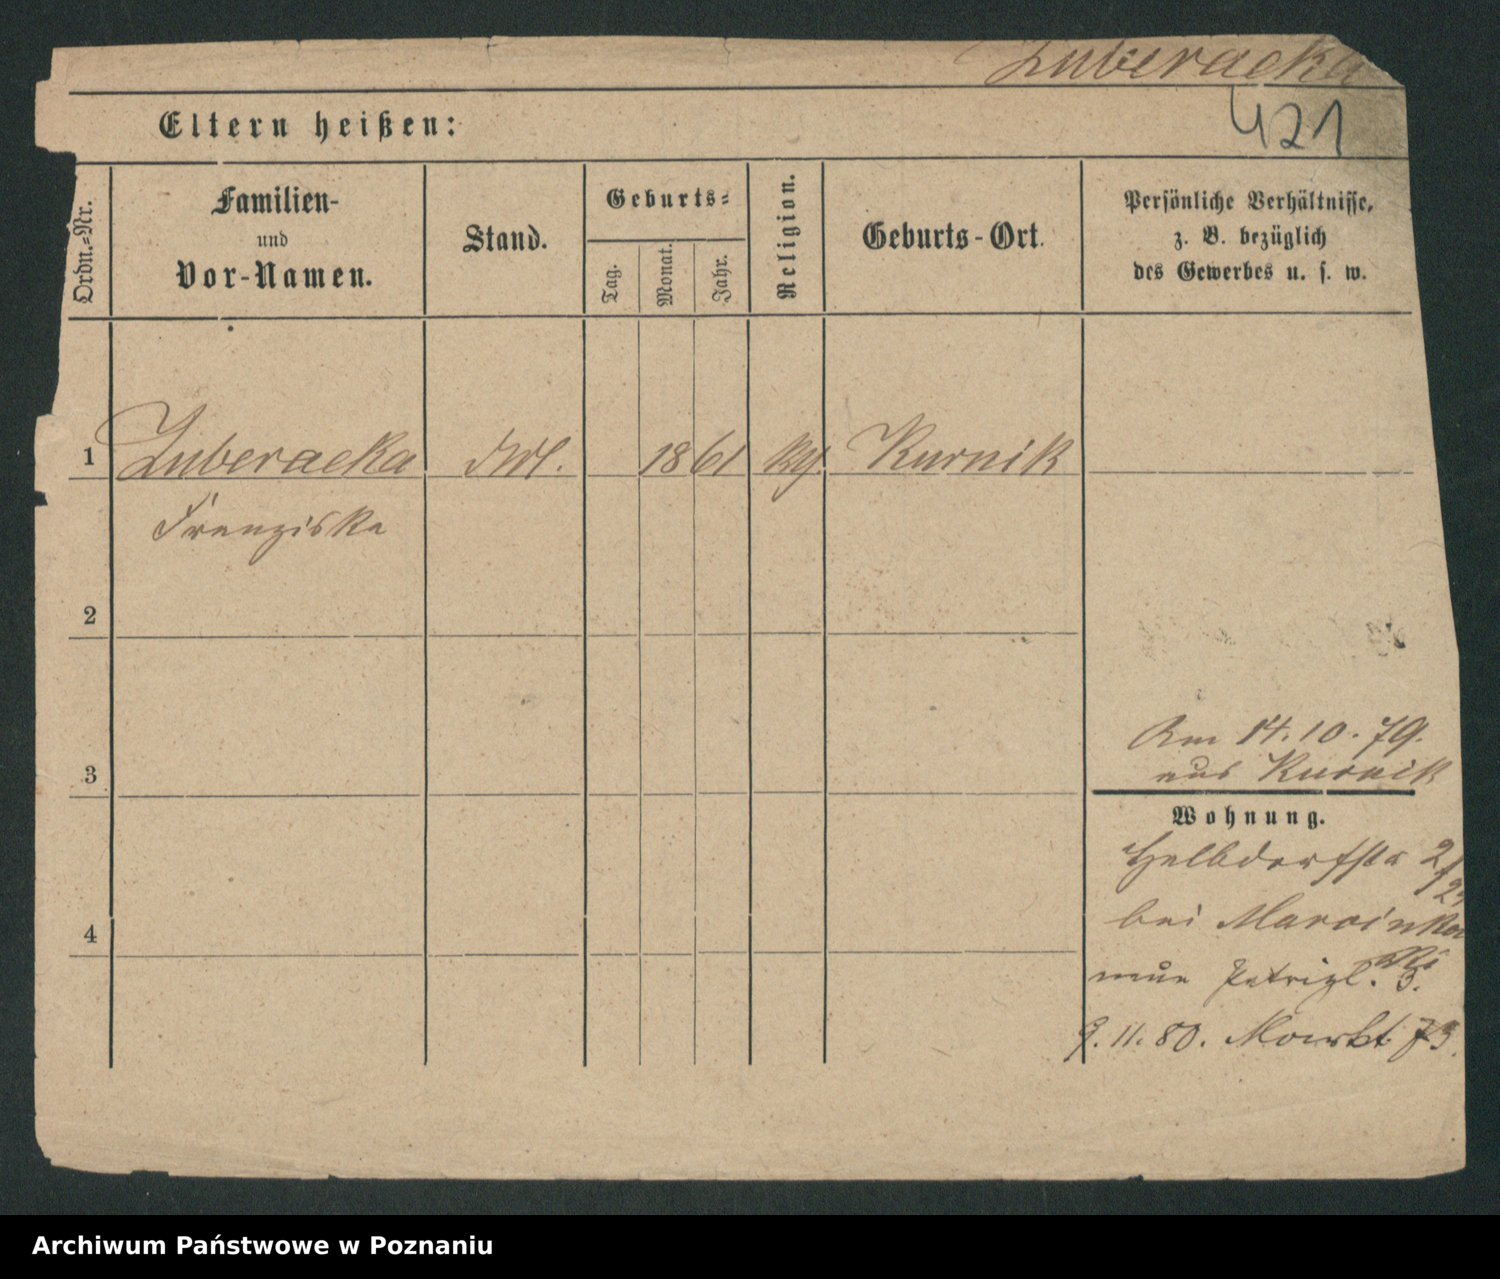 Zuberacka
421
Eltern heißen:
Ordn.=Nr.
Familien-
und
Vor-Namen.
Stand.
Geburts=
Tag.
Monat.
Jahr.
Religion.
Geburts-Ort.
Persönliche Verhältnisse,
z. B. bezüglich
des Gewerbes u. s. w.
1 Zuberacka 1861 Kurnik
Franziska
2
3
4
Am 14.10.79.
aus Kurnik
Wohnung.
Halbdorfstr
bei Marcinkow
ski
9.11.80. Markt 73.
Archiwum Państwowe w Poznaniu